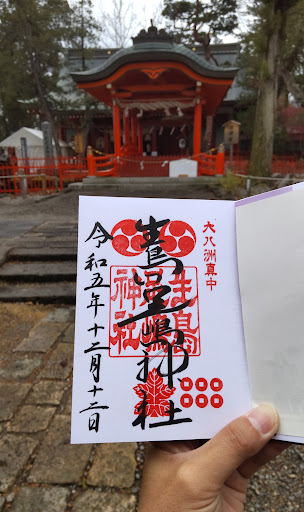 大八洲真中
生島足嶋神社
生島
神社
令和五年十二月十二日